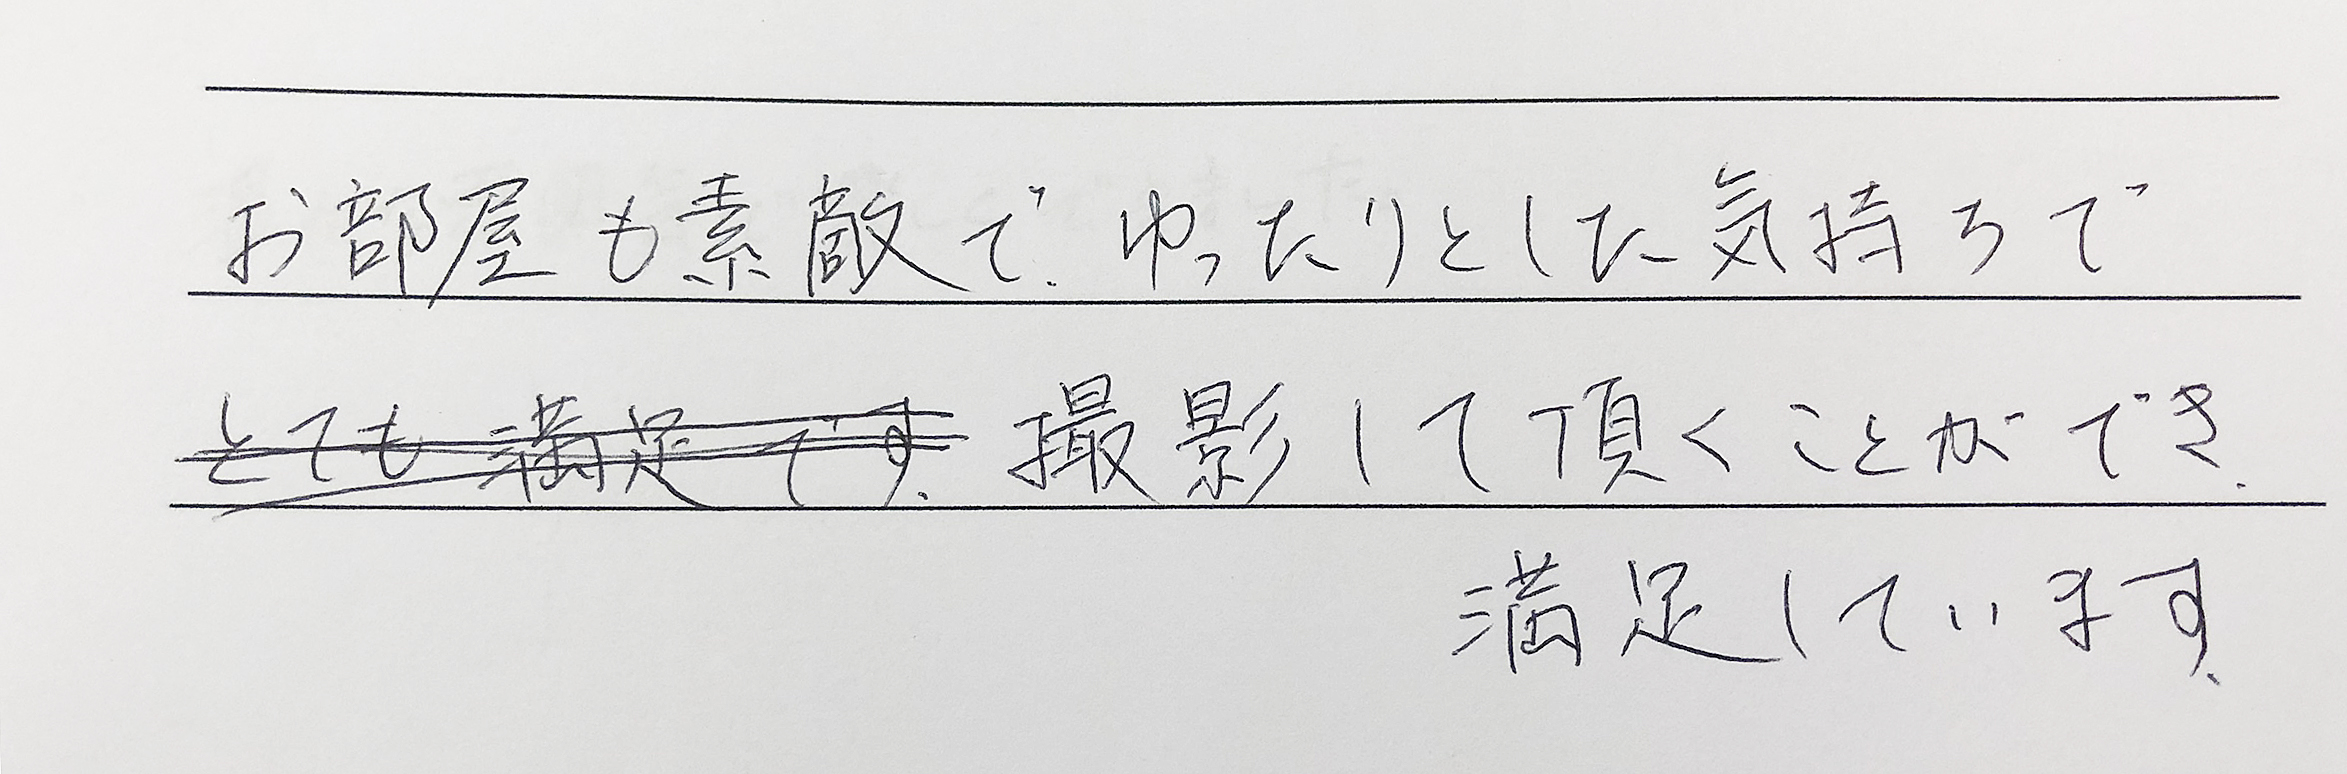 お部屋も素敵で、ゆったりとした気持ちで
とても満足です、撮影して頂くことができ、
満足しています、